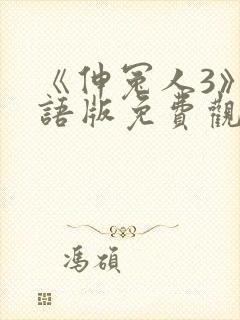 《伸冤人3》
語版免費觀
馮碩